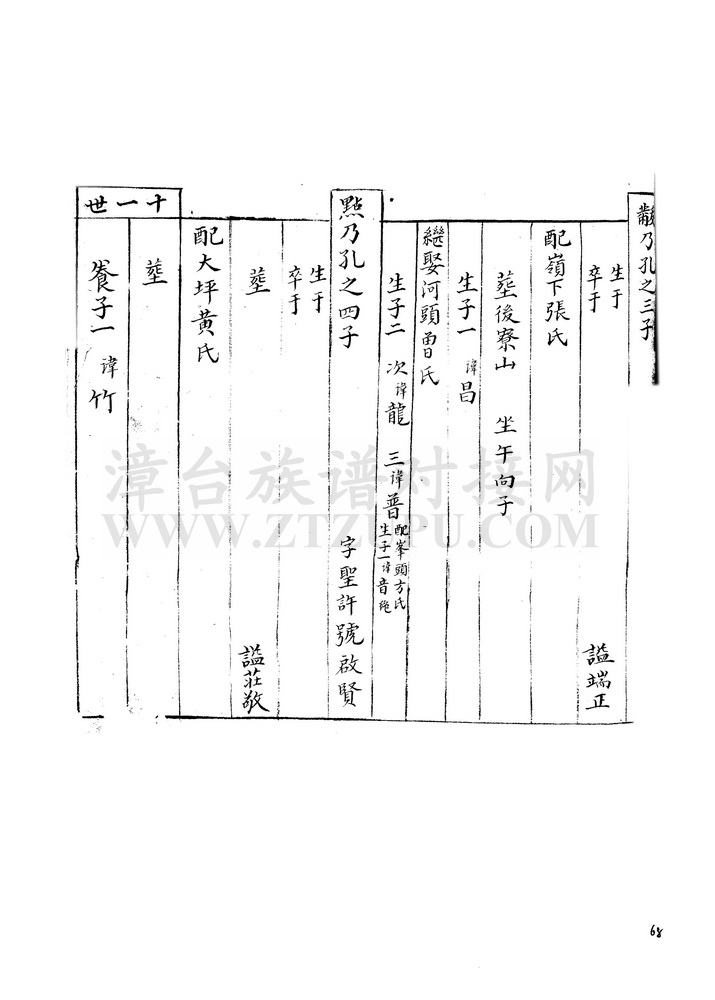 黻乃孔之三子
生于
卒于
謚端正
配嶺下張氏
塟後寮山 坐午向子
生子一 諱昌
繼娶河頭曾氏
生子二 次諱龍 三諱普 配峯頭方氏
生子一諱音
點乃孔之四子 字聖許號啟賢
生于
卒于
塟 謚莊敬
配大坪黄氏
塟
養子一 諱竹
十一世
漳台族谱对接网
WWW.ZTZUPU.COM
68